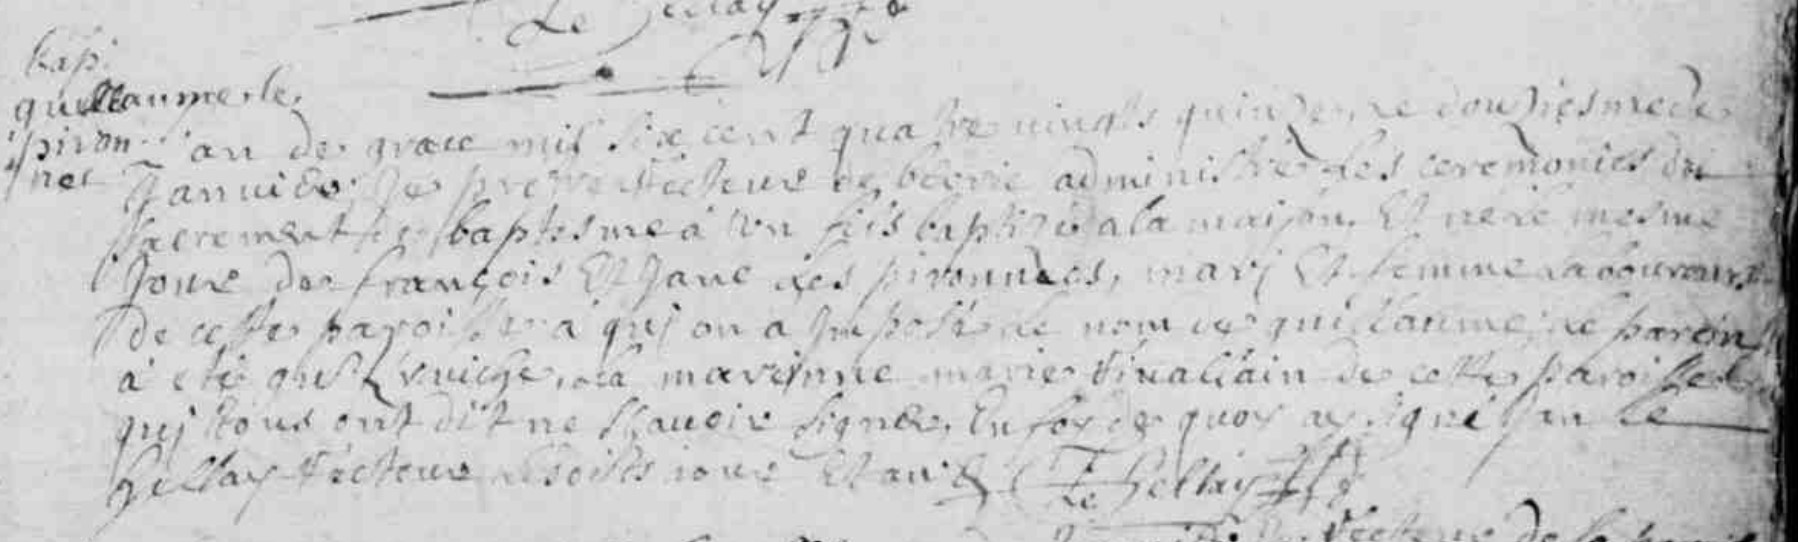 Le Gellay
bap.
guillaume le
piron
nec
L'an de grace mil six cent quatre vingts quinze, ce douziesme de
Januier, Je pretre Recteur de administré les ceremonies du
sacrement de baptesme à vn fils baptizé a la maison. Et né le mesme
Jour de françois Et Jane les pironnecs, mary Et femme
de cette paroisse a quj on a Jmposé le nom de guillaume, le parein
à eté la mareinne marie de cette paroisse
quj tous ont dit ne sçauoir signer, En foy de quoy ay signé Jan le
Gellay Recteur jour Et an
Le Gellay
Recteur de la